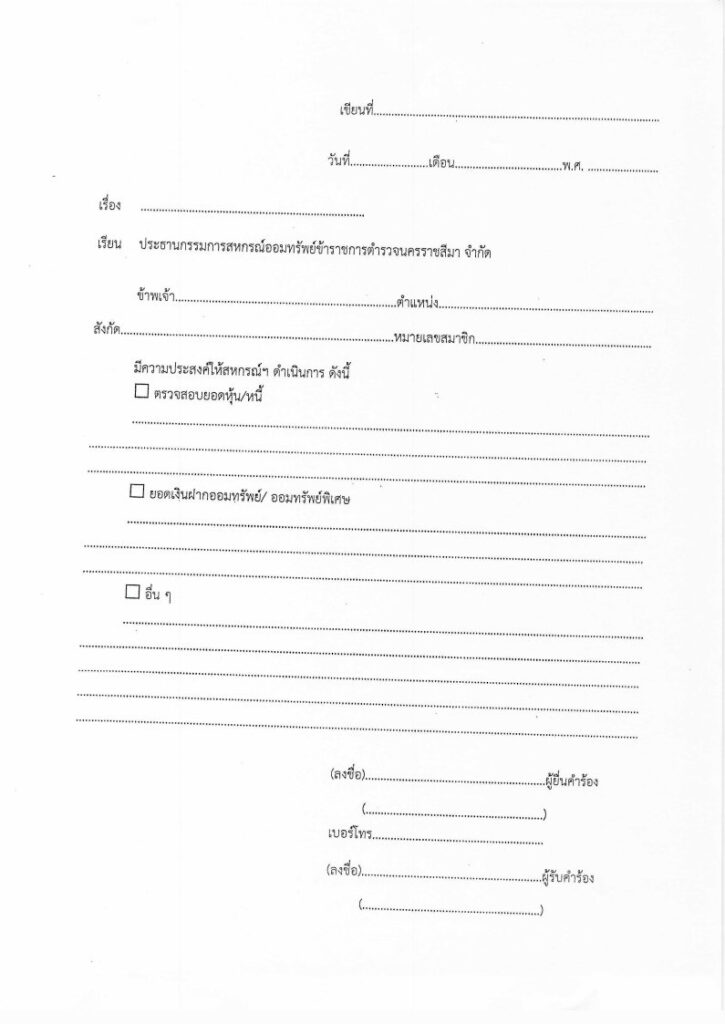 เขียนที่................................................................................
วันที่......................เดือน..............................พ.ศ. ....................
เรื่อง ..............................................................
เรียน ประธานกรรมการสหกรณ์ออมทรัพย์ข้าราชการตำรวจนครราชสีมา จำกัด
ข้าพเจ้า..............................................................ตำแหน่ง............................................................
สังกัด............................................................................หมายเลขสมาชิก.................................................
มีความประสงค์ให้สหกรณ์ฯ ดำเนินการ ดังนี้
☐ ตรวจสอบยอดหุ้น/หนี้
................................................................................................................................................
............................................................................................................................................................
............................................................................................................................................................
☐ ยอดเงินฝากออมทรัพย์/ ออมทรัพย์พิเศษ
................................................................................................................................................
............................................................................................................................................................
............................................................................................................................................................
☐ อื่น ๆ
................................................................................................................................................
............................................................................................................................................................
............................................................................................................................................................
............................................................................................................................................................
............................................................................................................................................................
(ลงชื่อ)..................................................ผู้ยื่นคำร้อง
(..................................................)
เบอร์โทร................................................
(ลงชื่อ)..................................................ผู้รับคำร้อง
(..................................................)